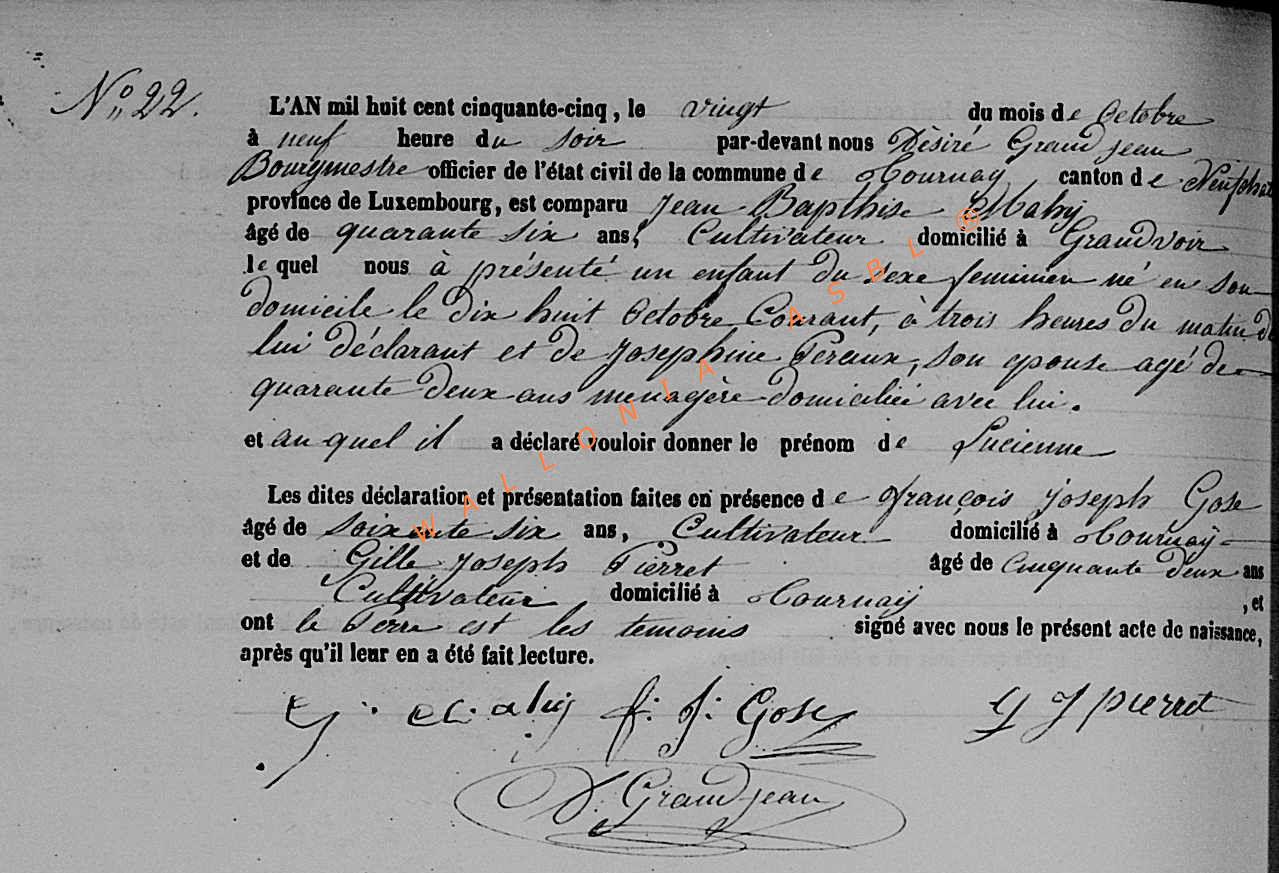 N° 22.
L'AN mil huit cent cinquante-cinq, le vingt du mois de Octobre
à neuf heure du soir par-devant nous Dèsiré Grandjean
Bourgmestre officier de l'état civil de la commune de Tournay canton de Neufchat
province de Luxembourg, est comparu Jean Bapthise Mahy
âgé de quarante six ans, Cultivateur domicilié à Grandvoir
le quel nous à présenté un enfant du sexe feminien né en son
domicile le dix huit Octobre Courant, à trois heures du matin de
lui déclarant et de Josephine Pereaux, son epouse agé de
quarante deux ans menagère domiciliée avec lui.
et au quel il a déclaré vouloir donner le prénom de Lucienne
Les dites déclaration et présentation faites en présence de françois Joseph Gose
âgé de soixante six ans, Cultivateur domicilié à Tournay
et de Gille Joseph Pierret âgé de Cinquante deux ans
Cultivateur domicilié à Tournay, et
ont le Perre est les temoins signé avec nous le présent acte de naissance,
après qu'il leur en a été fait lecture.
f. J. Gose G J pierret
D. Grandjean
WALLONIA ASBL ®